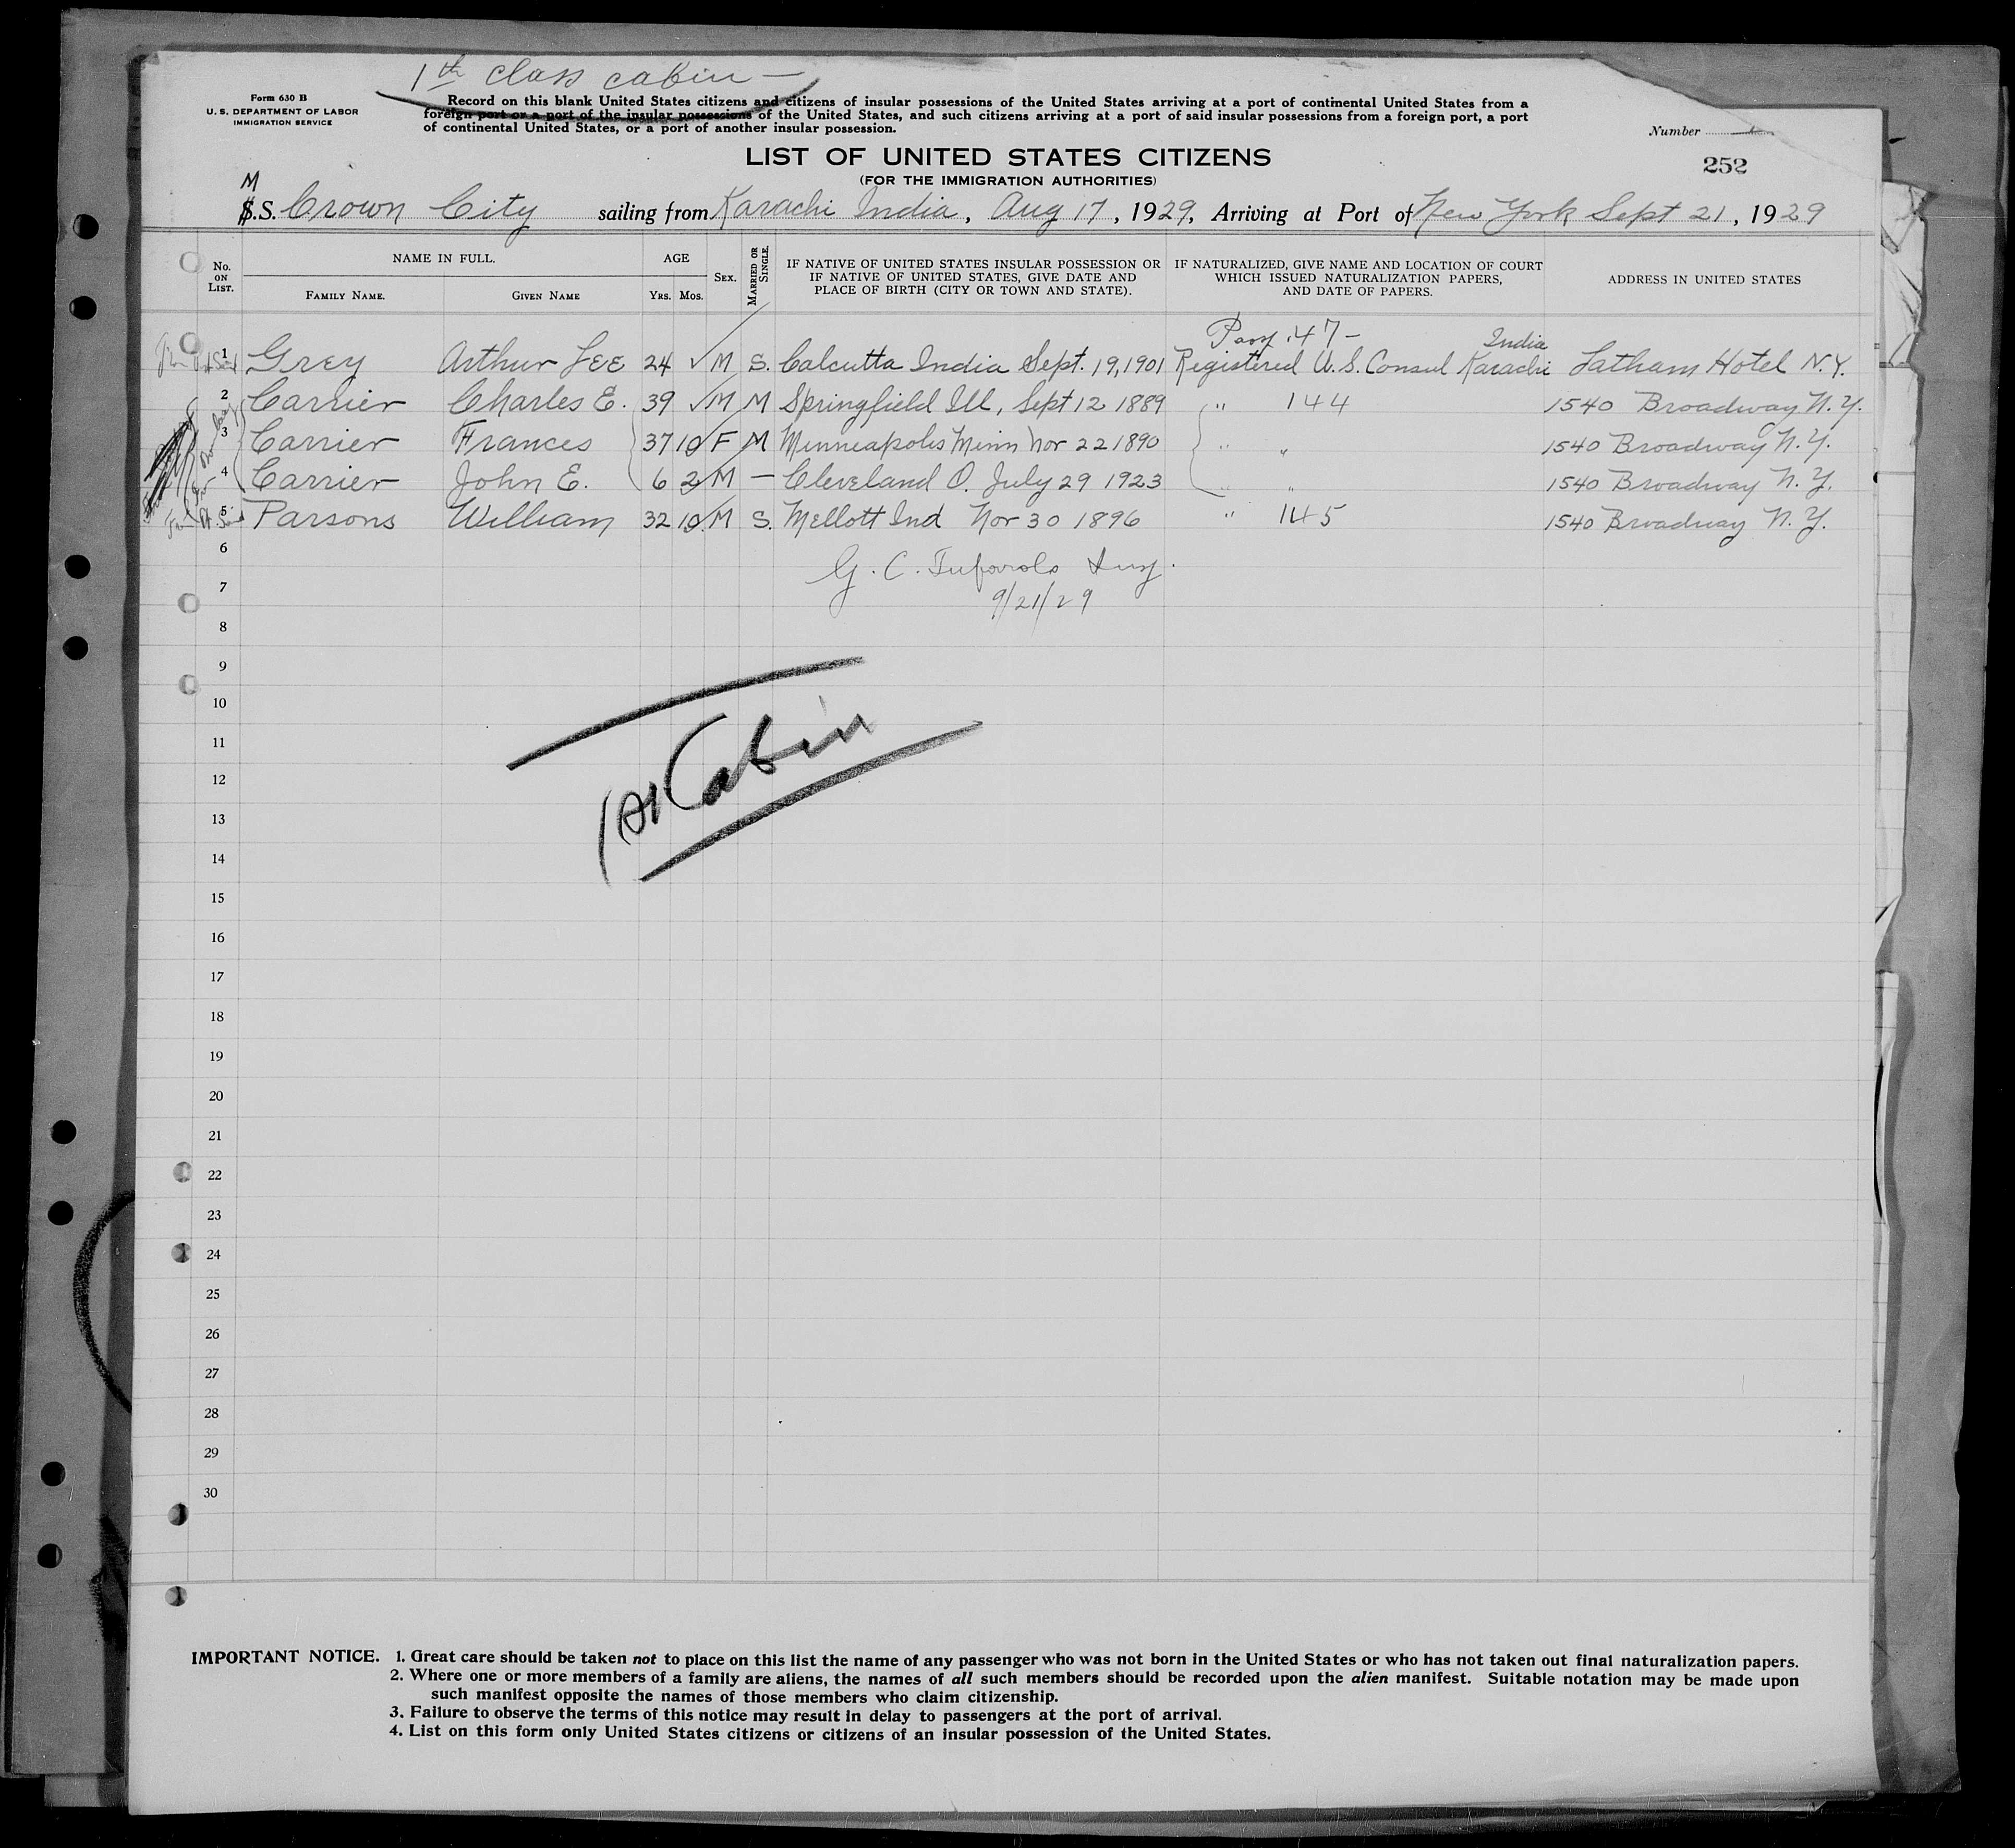 1th class cabin —
Form 630 B
U. S. DEPARTMENT OF LABOR
IMMIGRATION SERVICE
Record on this blank United States citizens and citizens of insular possessions of the United States arriving at a port of continental United States from a
foreign port or a port of the insular possessions of the United States, and such citizens arriving at a port of said insular possessions from a foreign port, a port
of continental United States, or a port of another insular possession.
Number
LIST OF UNITED STATES CITIZENS
252
(FOR THE IMMIGRATION AUTHORITIES)
M
S.S. Crown City sailing from Karachi India, Aug 17, 1929, Arriving at Port of New York Sept 21, 1929
No. ON LIST. NAME IN FULL. FAMILY NAME. GIVEN NAME AGE YRS. MOS. SEX. MARRIED OR SINGLE. IF NATIVE OF UNITED STATES INSULAR POSSESSION OR IF NATIVE OF UNITED STATES, GIVE DATE AND PLACE OF BIRTH (CITY OR TOWN AND STATE). IF NATURALIZED, GIVE NAME AND LOCATION OF COURT WHICH ISSUED NATURALIZATION PAPERS, AND DATE OF PAPERS. ADDRESS IN UNITED STATES
Pass 147 — India
1 Grey Arthur LEE 24 M S. Calcutta India Sept. 19, 1901 Registered U. S. Consul Karachi Latham Hotel N. Y.
2 Carrier Charles E. 39 M M Springfield Ill, Sept 12 1889 " 144 1540 Broadway N. Y.
3 Carrier Frances 37 10 F M Minneapolis Minn Nor 22 1890 " " 1540 Broadway N. Y.
4 Carrier John E. 6 2 M — Cleveland O. July 29 1923 " " 1540 Broadway N. Y.
5 Parsons William 32 10 M S. Mellott Ind Nor 30 1896 " 145 1540 Broadway N. Y.
6
G. C.
7
9/21/29
8
9
10
11
12
1st Cabin
13
14
15
16
17
18
19
20
21
22
23
24
25
26
27
28
29
30
IMPORTANT NOTICE. 1. Great care should be taken not to place on this list the name of any passenger who was not born in the United States or who has not taken out final naturalization papers.
2. Where one or more members of a family are aliens, the names of all such members should be recorded upon the alien manifest. Suitable notation may be made upon
such manifest opposite the names of those members who claim citizenship.
3. Failure to observe the terms of this notice may result in delay to passengers at the port of arrival.
4. List on this form only United States citizens or citizens of an insular possession of the United States.